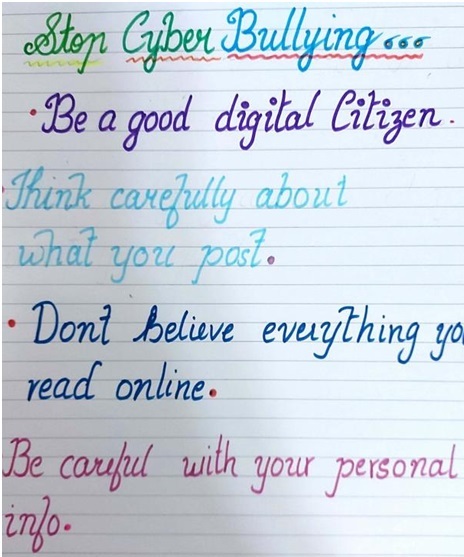 Stop Cyber Bullying...
• Be a good digital Citizen.
• Think carefully about
what you post.
• Dont believe everything yo
read online.
Be careful with your personal
info.